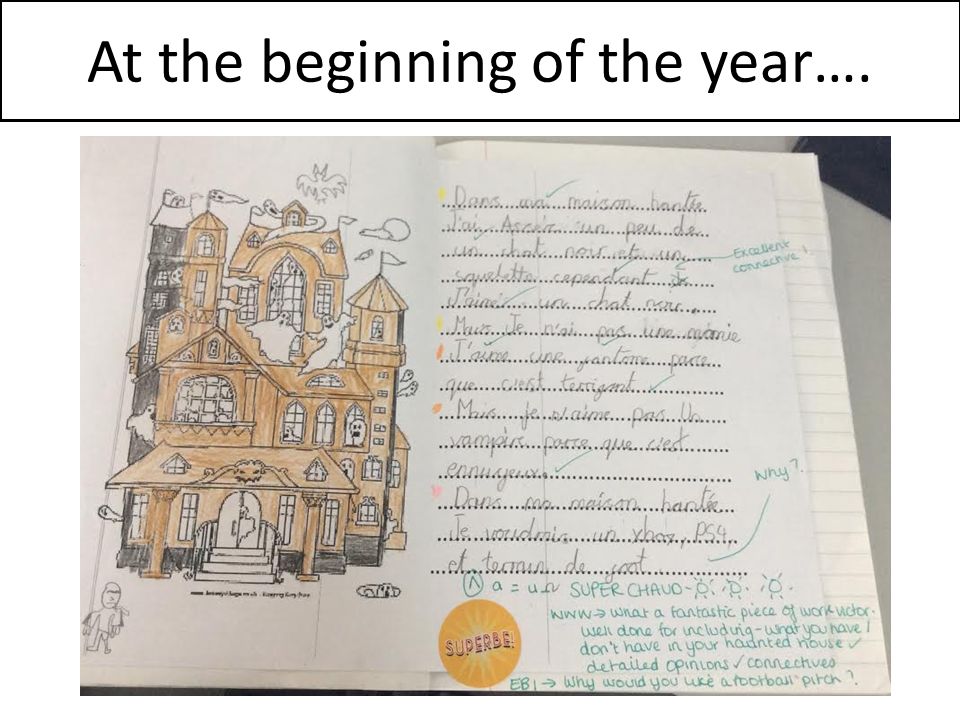 At the beginning of the year….
Dans ma maison hantée
J'ai Assér un peu de
un chat noir et un
squelette cependant
Excellent
connective!
J'aime un chat noir,
Mais Je n'ai pas une
J'aime une fantome parce
que c'est terrifiant
Mais je n'aime pas Un
vampire parce que c'est
ennuyeux
Why?
Dans ma maison hantée
Je voudrais un xbox, PS4,
et terrain de foot
a = un SUPER CHAUD
WWW → What a fantastic piece of work victor.
Well done for including - what you have /
don't have in your haunted house ✓
detailed opinions ✓ connectives
EBI → Why would you like a football pitch?
SUPERBE!